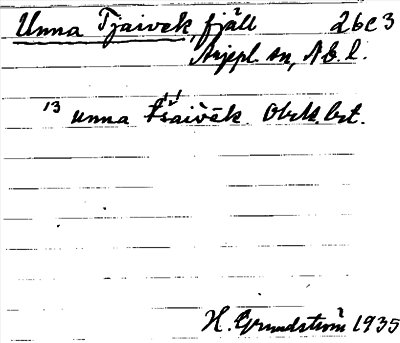 Unna Tjaivek, fjäll 26c3
Arjepl. sn, Nb. l.
13 unna tšaìvēk. Obzk. bst.
H. Grundström 1935